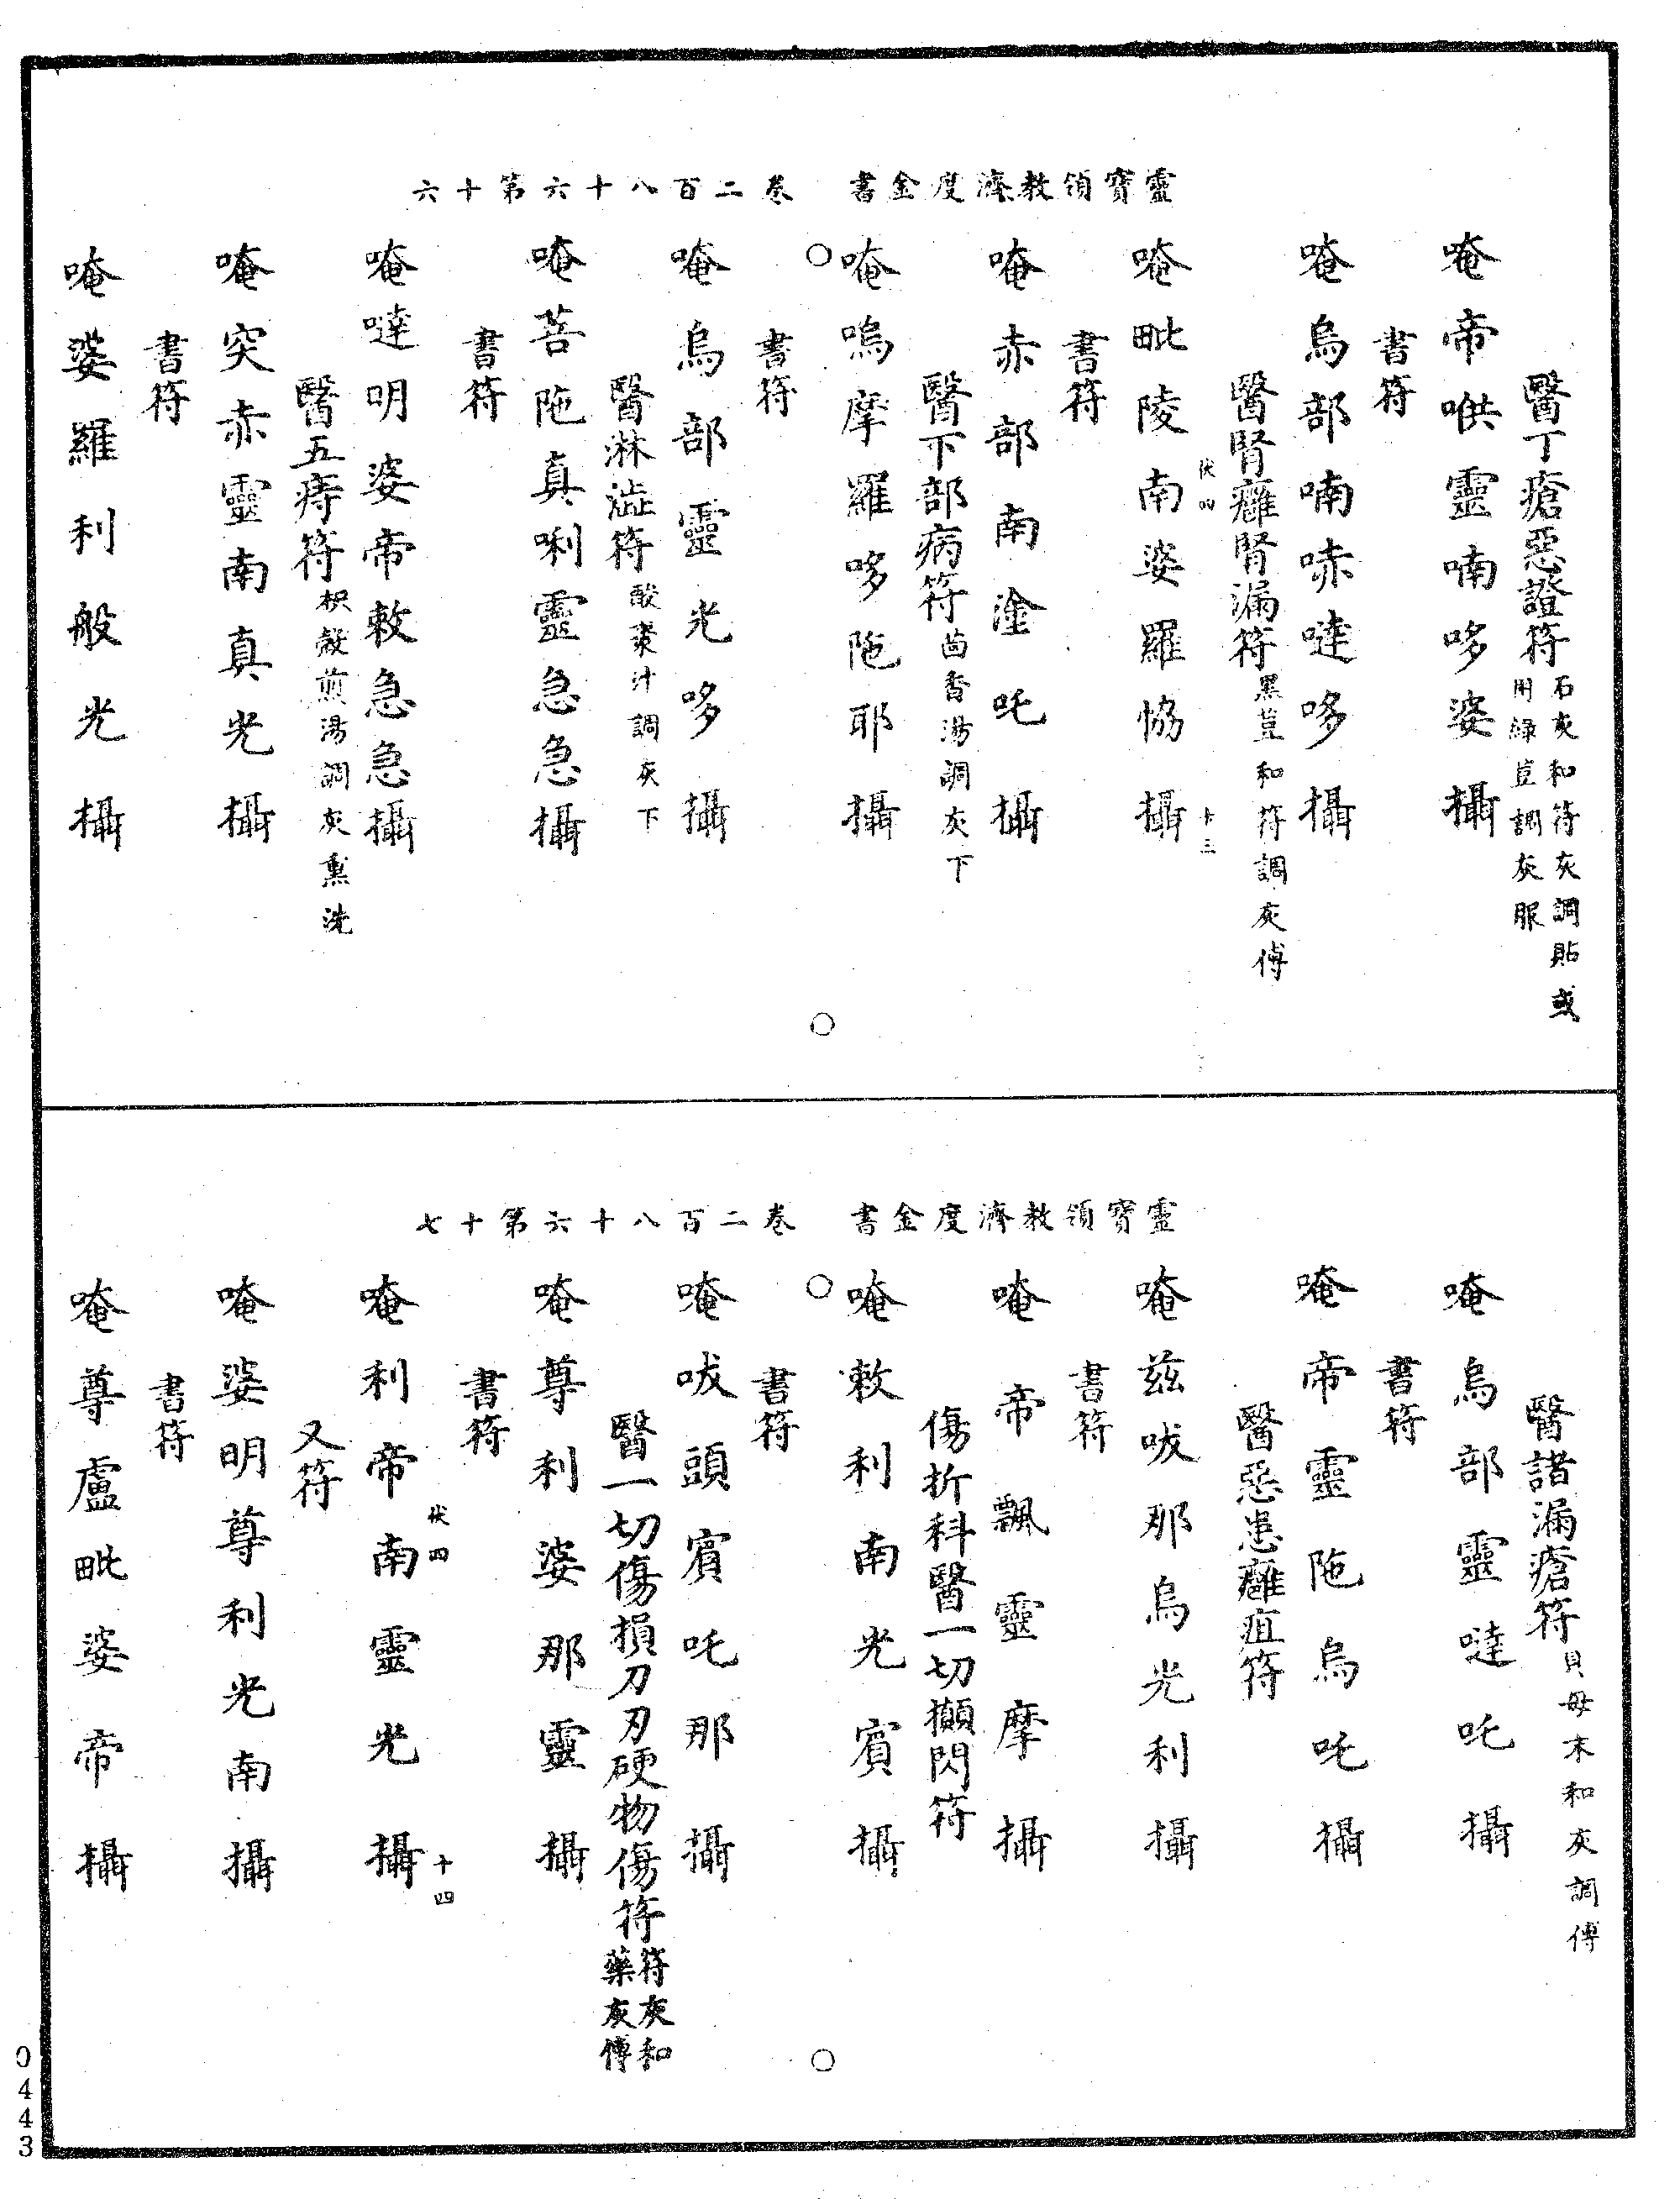 靈寶領教濟度金書　卷二百八十六第十六
醫丁瘡惡證符石灰和符灰調貼或用綠荳調灰服
唵帝哄靈喃哆娑攝
書符
唵烏部喃哧噠哆攝
醫腎癰腎漏符黑荳和符調灰傅
伏四　十三
唵毗陵南娑羅恊攝
書符
唵赤部南塗吒攝
醫下部病符茴香湯調灰下
唵嗚摩羅哆陁耶攝
書符
唵烏部靈光哆攝
醫淋澁符酸棗汁調灰下
唵菩陁真唎靈急急攝
書符
唵噠明娑帝敕急急攝
醫五痔符枳殼煎湯調灰熏洗
唵突赤靈南真光攝
書符
唵娑羅利般光攝
靈寶領教濟度金書　卷二百八十六第十七
醫諸漏瘡符貝母末和灰調傅
唵烏部靈噠吒攝
書符
唵帝靈陁烏吒攝
醫惡患癰疽符
唵茲㕹那烏光利攝
書符
唵帝飄靈摩攝
傷折科醫一切攧閃符
唵敕利南光賓攝
書符
唵㕹頭賓吒那攝
醫一切傷損刀刃硬物傷符符灰和藥灰傅
唵尊利娑那靈攝
書符
伏四　十四
唵利帝南靈光攝
又符
唵娑明尊利光南攝
書符
唵尊盧毗娑帝攝
0443